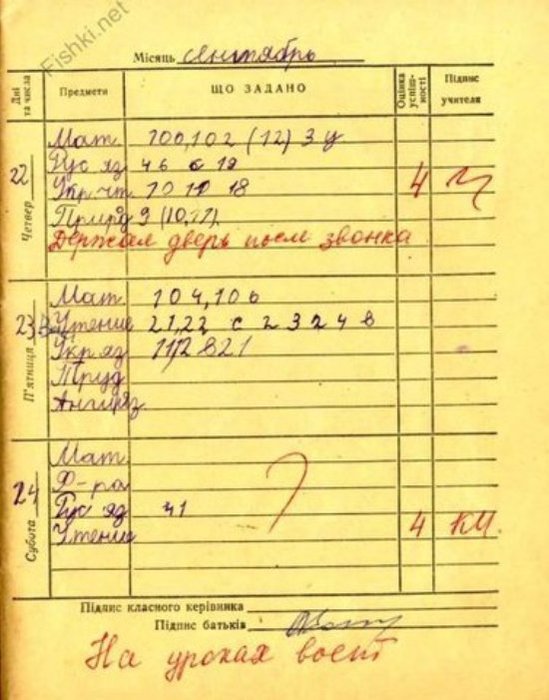 Fishki.net
Місяць сентябрь
Дні та числа Предмети ЩО ЗАДАНО Оцінка успіш-ності Підпис учителя
22 Четвер
Мат. 100,102 (12) 3 у
Рус яз 46 с 19
Укр.чт. 10 18 4
Природ 9
Держал дверь после звонка
23 П'ятниця
Мат. 104,106
Чтение 21,22 с 23 24 в
Укр яз
Труд
Англ.яз.
24 Субота
Мат.
Ф-ра
Рус яз 41
Чтение 4 КМ.
Підпис класного керівника
Підпис батьків
На уроках воет